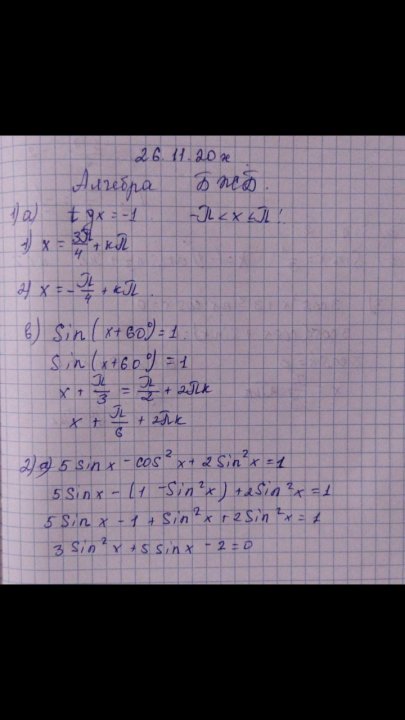 26.11.20ж
Алгебра БЖСБ.
1) а) tgx = -1 -π < x ≤ π!
1) x = 3π/4 + кπ
2) x = -π/4 + кπ.
в) Sin(x+60°) = 1.
Sin(x+60°) = 1
x + π/3 = π/2 + 2πк
x + π/6 + 2πк
2) а) 5 Sinx - cos²x + 2 Sin²x = 1
5 Sinx - (1 - Sin²x) + 2 Sin²x = 1
5 Sinx - 1 + Sin²x + 2 Sin²x = 1
3 Sin²x + 5 Sinx - 2 = 0